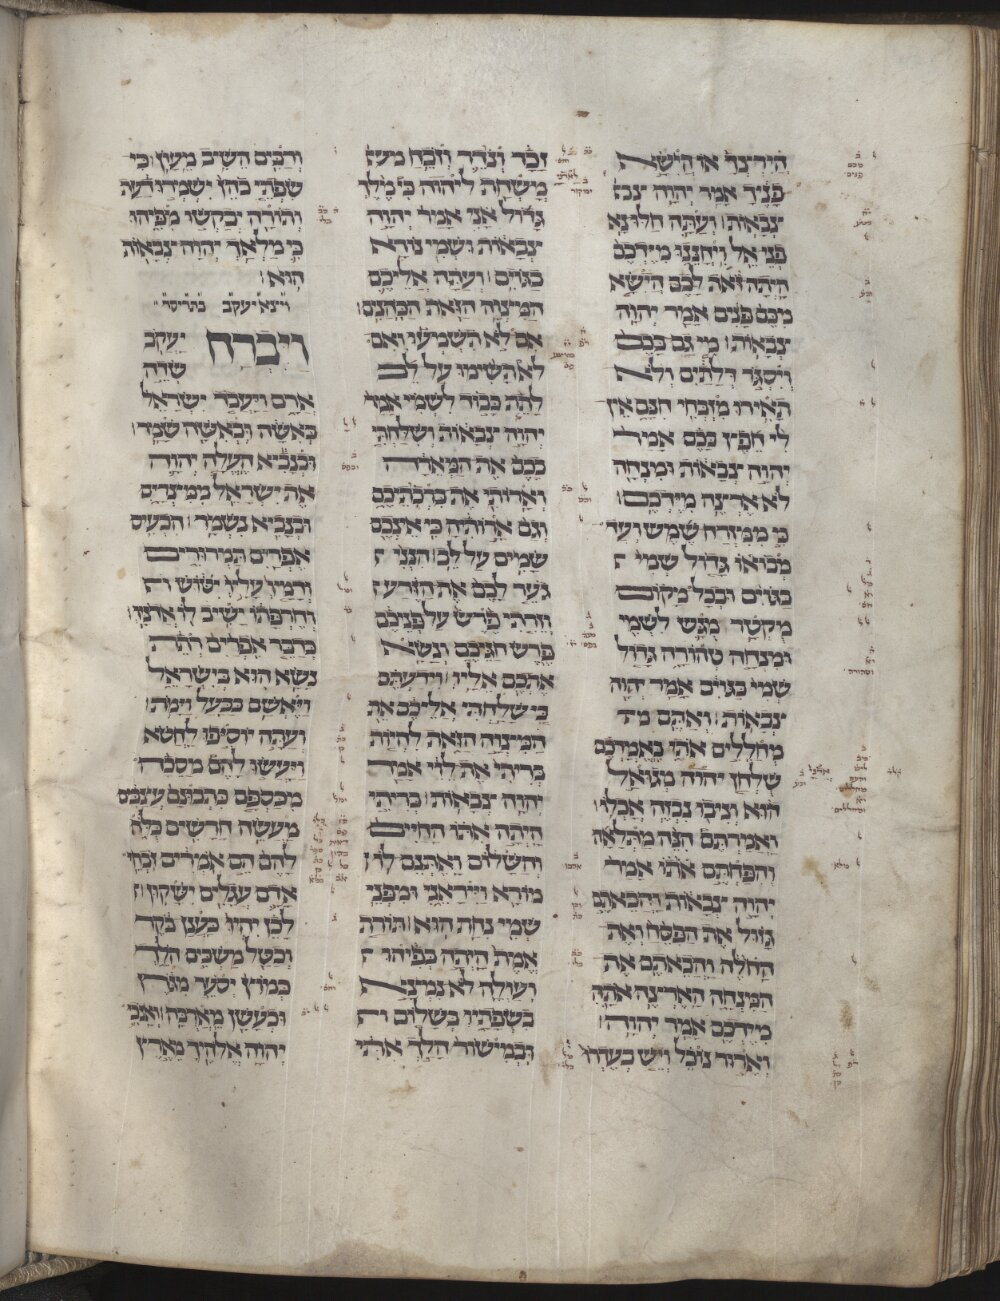 הירצך או הישא
פניך אמר יהוה צבא
צבאות ועתה חלו נא
פני אל ויחננו מידכם
היתה זאת לכם הישא
מכם פנים אמר יהוה
צבאות מי גם בכם
ויסגר דלתים ולא
תאירו מזבחי חנם אין
לי חפץ בכם אמר
יהוה צבאות ומנחה
לא ארצה מידכם
כי ממזרח שמש ועד
מבואו גדול שמי
בגוים ובכל מקום
מקטר מגש לשמי
ומנחה טהורה גדול
שמי בגוים אמר יהוה
צבאות ואתם
מחללים אותו באמרכם
שלחן יהוה מגואל
הוא וניבו נבזה אכלו
ואמרתם הנה מתלאה
והפחתם אותו אמר
יהוה צבאות והבאתם
גזול את הפסח ואת
החולה והבאתם את
המנחה הארצה אתה
מידכם אמר יהוה
וארור נוכל ויש בעדרו
זכר ונדר וזבח
משחת ליהוה כי מלך
גדול אני אמר יהוה
צבאות ושמי נורא
בגוים ועתה אליכם
המצוה הזאת הכהנים
אם לא תשמעו ואם
לא תשימו על לב
לתת כבוד לשמי אמר
יהוה צבאות ושלחתי
בכם את המארה
וארותי את ברכתיכם
וגם ארותיה כי אינכם
שמים על לב הנני
גער לכם את הזרע
וזריתי פרש על פניכם
פרש חגיכם ונשא
אתכם אליו וידעתם
כי שלחתי אליכם את
המצוה הזאת להיות
בריתי את לוי אמר
יהוה צבאות בריתי
היתה אתו החיים
והשלום ואתנם לו
מורא וייראני ומפני
שמי נחת הוא תורת
אמת היתה בפיהו
ועולה לא נמצא
בשפתיו בשלום
ובמישור הלך אתי
ורבים השיב מעון כי
שפתי כהן ישמרו דעת
ותורה יבקשו מפיהו
כי מלאך יהוה צבאות
הוא
ויצא יעקב בתריסר
ויברח יעקב
שדה
ארם ויעבד ישראל
באשה ובאשה שמר
ובנביא העלה יהוה
את ישראל ממצרים
ובנביא נשמר הכעיס
אפרים תמרורים
ודמיו עליו יטוש
וחרפתו ישיב לו אדניו
כדבר אפרים רתת
נשא הוא בישראל
ויאשם בבעל וימת
ועתה יוסיפו לחטא
ויעשו להם מסכה
מכספם כתבונם עצבים
מעשה חרשים כלה
להם הם אמרים זבחי
אדם עגלים ישקון
לכן יהיו כענן בקר
וכטל משכים הלך
כמוץ יסער מגרן
וכעשן מארבה ואנכי
יהוה אלהיך מארץ